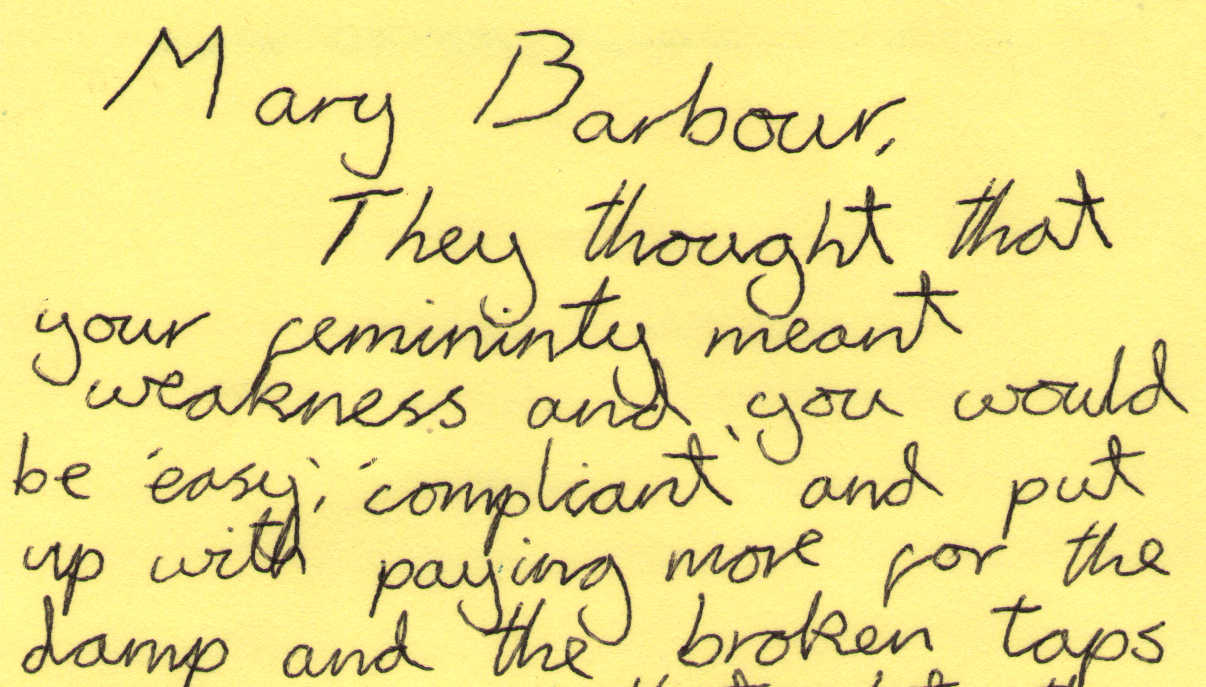 Mary Barbour,
They thought that
your femininty meant
weakness and you would
be 'easy', 'compliant' and put
up with paying more for the
damp and the broken taps